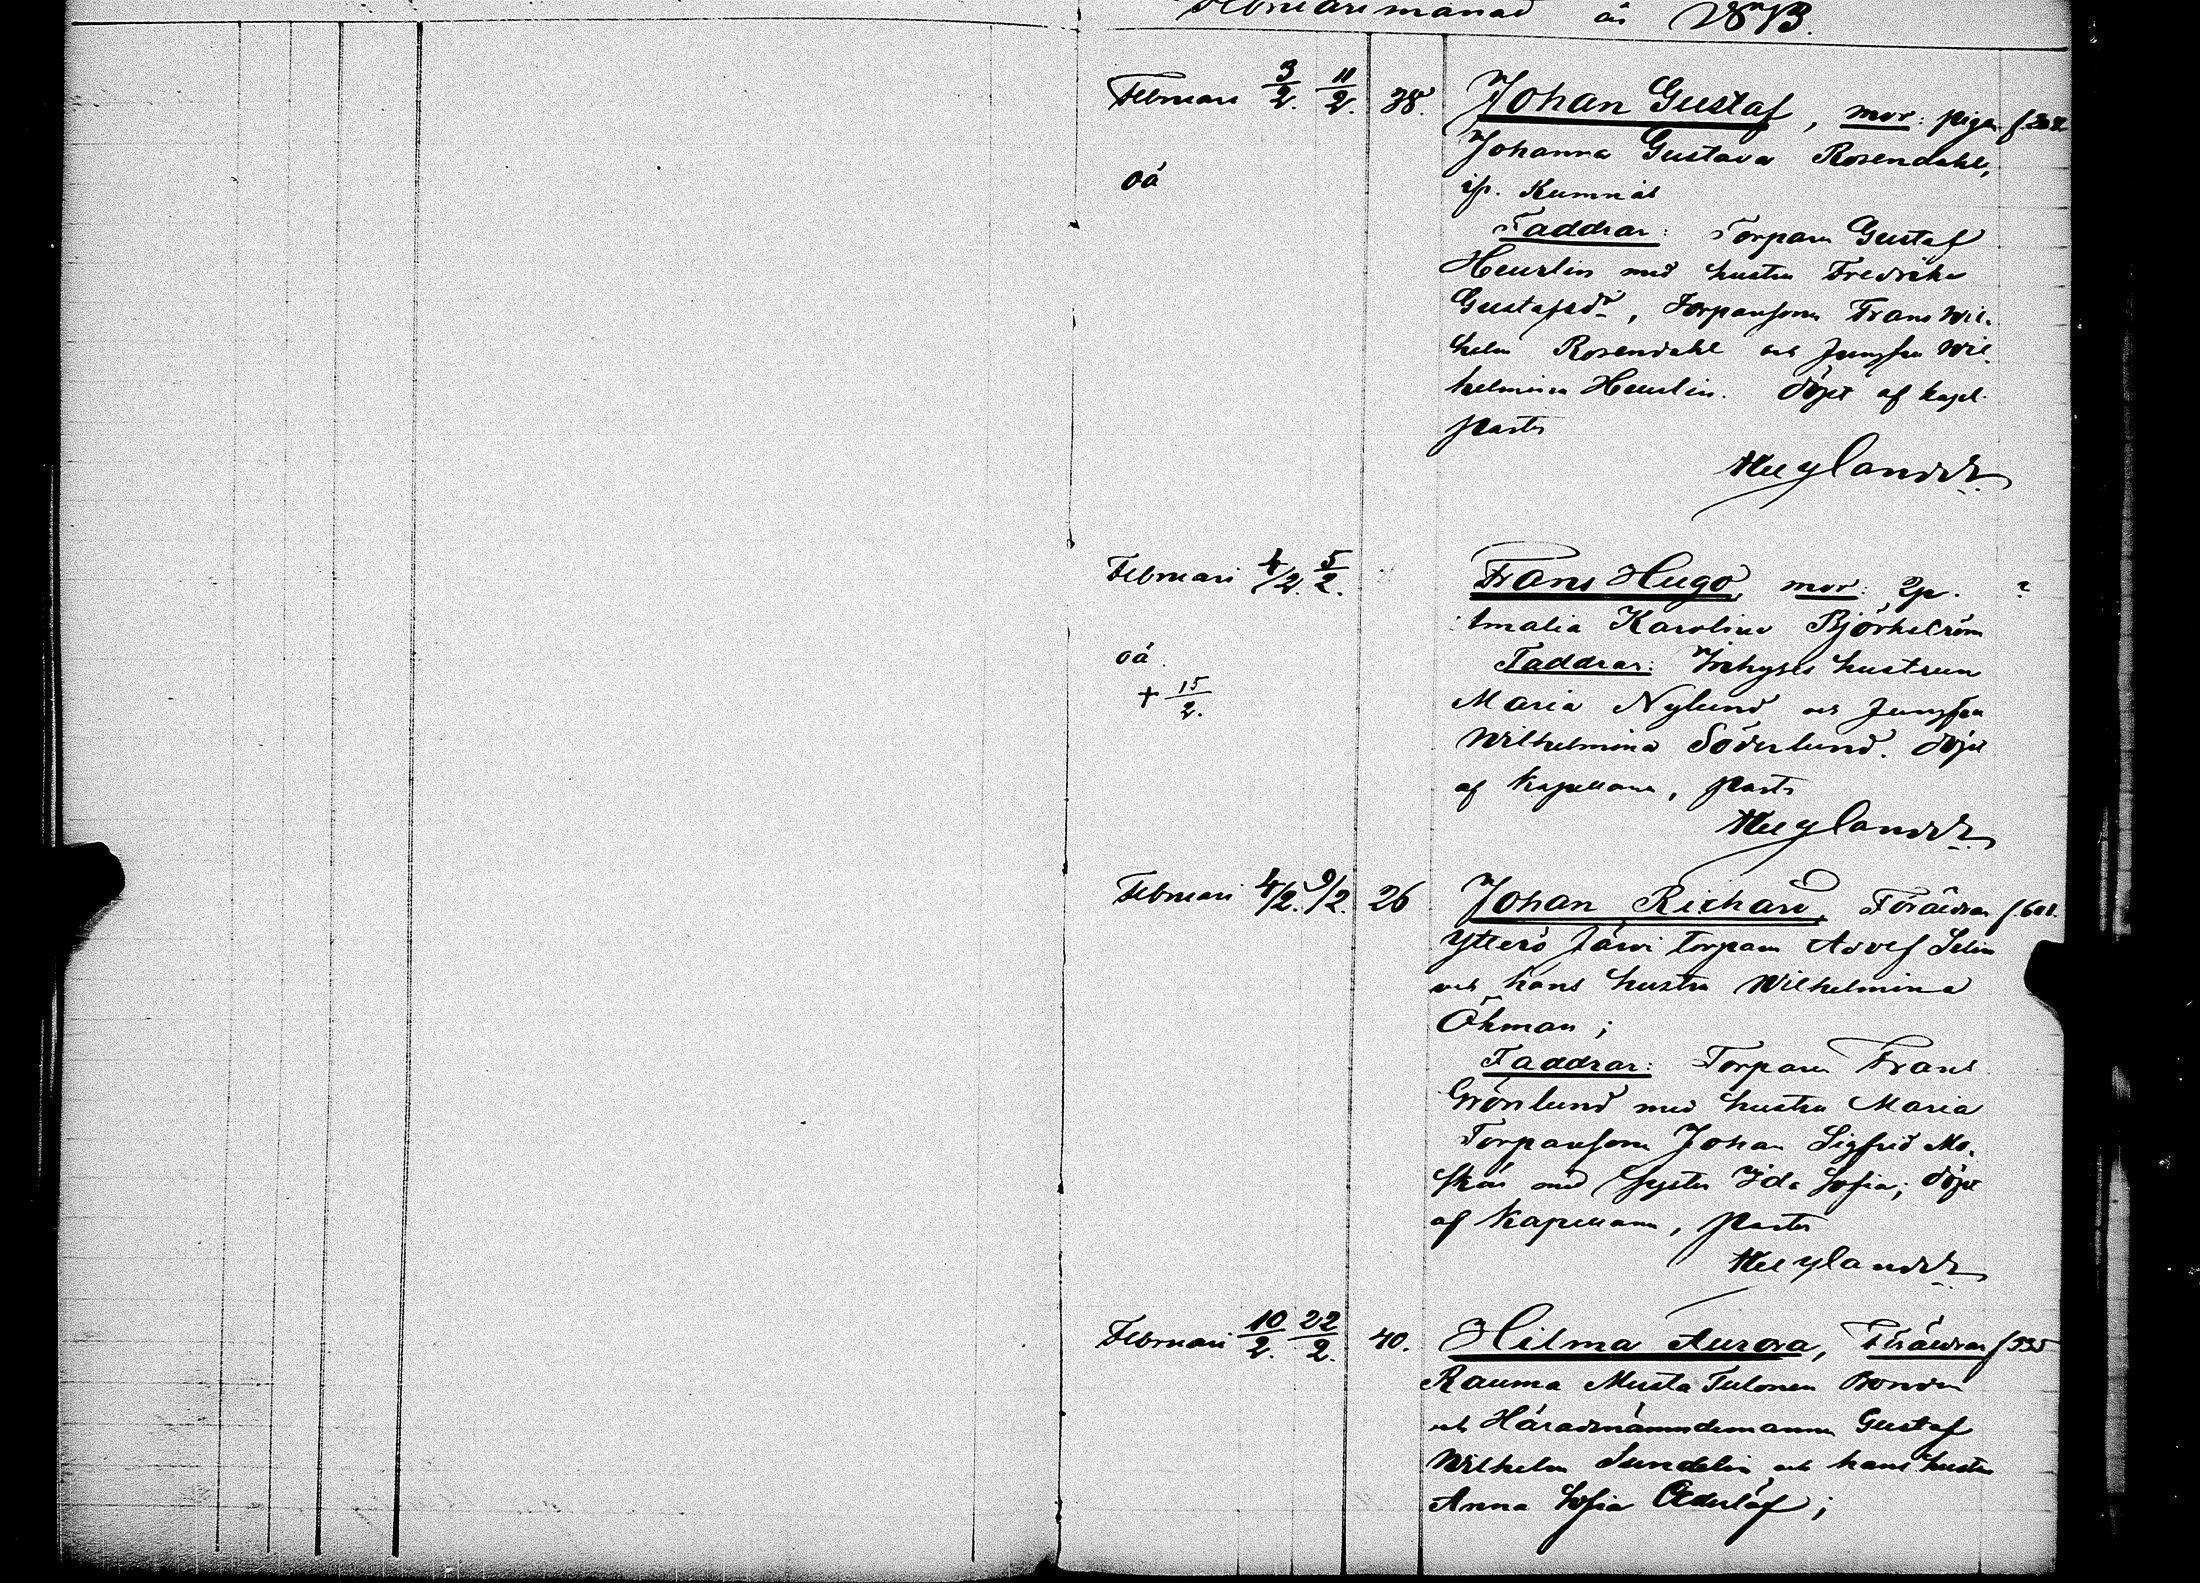 Februarimånad år 1873.
Februari 3/2. 11/2. 38. Johan Gustaf, mor: pigan
Johanna Gustava Rosendahl,
oä
ifr. Kumnäs
Faddrar: Torparn Gustaf
Heurlin med hustru Fredrika
Gustafsdr, Torparsonen Frans Wil-
helm Rosendahl och Jungfru Wil-
helmina Heurlin. döpt af kapel.
Pastor
Februari 4/2. 5/2. Frans Hugo, mor: ?
Amalia Karolina Björkström
oä.
Faddrar: Inhyses hustrun
+ 15/2.
Maria Nylund och Jungfru
Wilhelmina Söderlund. döpt
af Kapellanen, Pastor
Februari 4/2. 9/2. 26 Johan Richard, Föräldrar f. 601.
Ytterö Järvi torparn Adolf Selin
och hans hustru Wilhelmina
Öhman;
Faddrar: Torparn Frans
Grönlund med hustru Maria
Torparsonen Johan Sigfrid Mo-
med syster Ida Sofia; döpt
af Kapellanen, Pastor
Februari 10/2. 22/2. 40. Hilma Aurora, Föräldrar f 335
Rauma Musta Tulonen Bonden
och Häradsnämndemannen Gustaf
Wilhelm Sundelin och hans hustru
Anna Sofia Cederlöf;